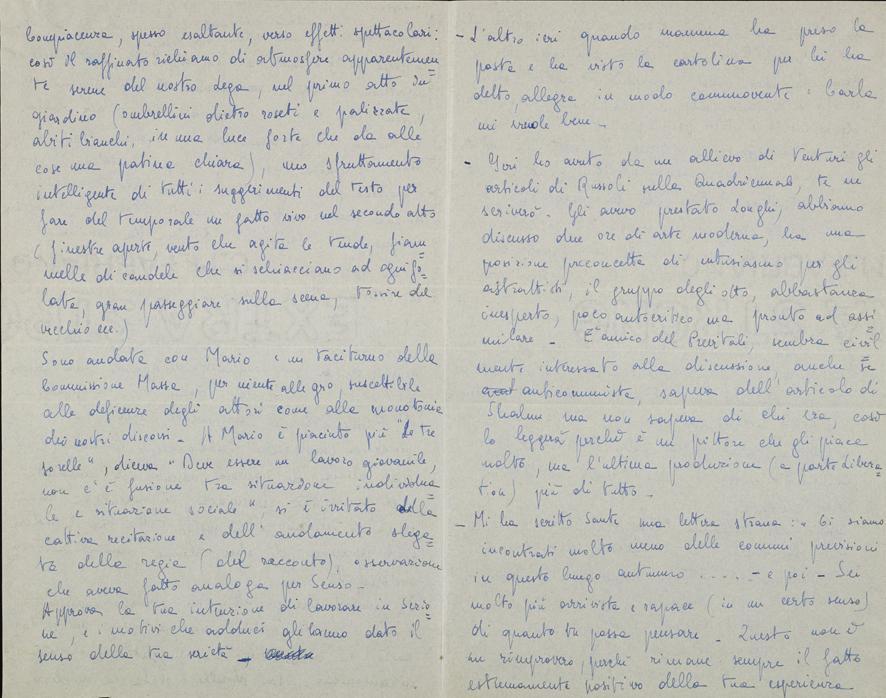 compiacenza, spesso esaltante, verso effetti spettacolari:
così il raffinato richiamo di atmosfere apparentemen=
te serene del nostro Lega, nel primo atto in
giardino (ombrellini dietro roseti e palizzate,
abiti bianchi, in una luce forte che dà alle
cose una patina chiara), uno sfruttamento
intelligente di tutti i suggerimenti del testo per
fare del temporale un fatto vivo nel secondo atto
(finestre aperte, vento che agita le tende, fiam=
melle di candele che si schiacciano ad ogni fo=
lata, gran passeggiare sulla scena, tossire del
vecchio ecc.)
Sono andata con Mario e un taciturno della
Commissione Massa, per niente allegro, suscettibile
alle deficenze degli attori come alla monotonia
dei nostri discorsi – A Mario è piaciuto più "Le tre
sorelle", diceva "Deve essere un lavoro giovanile,
non c'è fusione tra situazione individua=
le e situazione sociale", si è irritato della
cattiva recitazione e dell'andamento slega=
to della regia (del racconto), osservazione
che aveva fatto analoga per Senso –
Approva la tua intenzione di lavorare in
e i motivi che adduci gli hanno dato il
senso della tua serietà –
– L'altro ieri quando mamma ha preso la
posta e ha visto la cartolina per lei ha
detto, allegra in modo commovente: Carla
mi vuole bene –
– Ieri ho avuto da un allievo di Venturi gli
articoli di Russoli sulla Quadriennale, te ne
scriverò. Gli avevo prestato Longhi, abbiamo
discusso due ore di arte moderna, ha una
posizione preconcetta di entusiasmo per gli
astrattisti, il gruppo degli otto, abbastanza
inesperto, poco autocritico, ma pronto ad assi
milare – E' amico del Previtali, sembra civil=
mente interessato alla discussione, anche se=
anticomunista, sapeva dell'articolo di
Shahn ma non sapeva di chi era, così
lo leggerà perché è un pittore che gli piace
molto, ma l'ultima produzione (a parte Libera=
tion) più di tutto –
– Mi ha scritto Sante una lettera strana: "Ci siamo
incontrati molto meno delle comuni previsioni
in questo lungo autunno ..... – e poi – Sei
molto più arrivista e rapace (in un certo senso)
di quanto tu possa pensare – Questo non è
un rimprovero, perché rimane sempre il fatto
estremamente positivo della tua esperienza